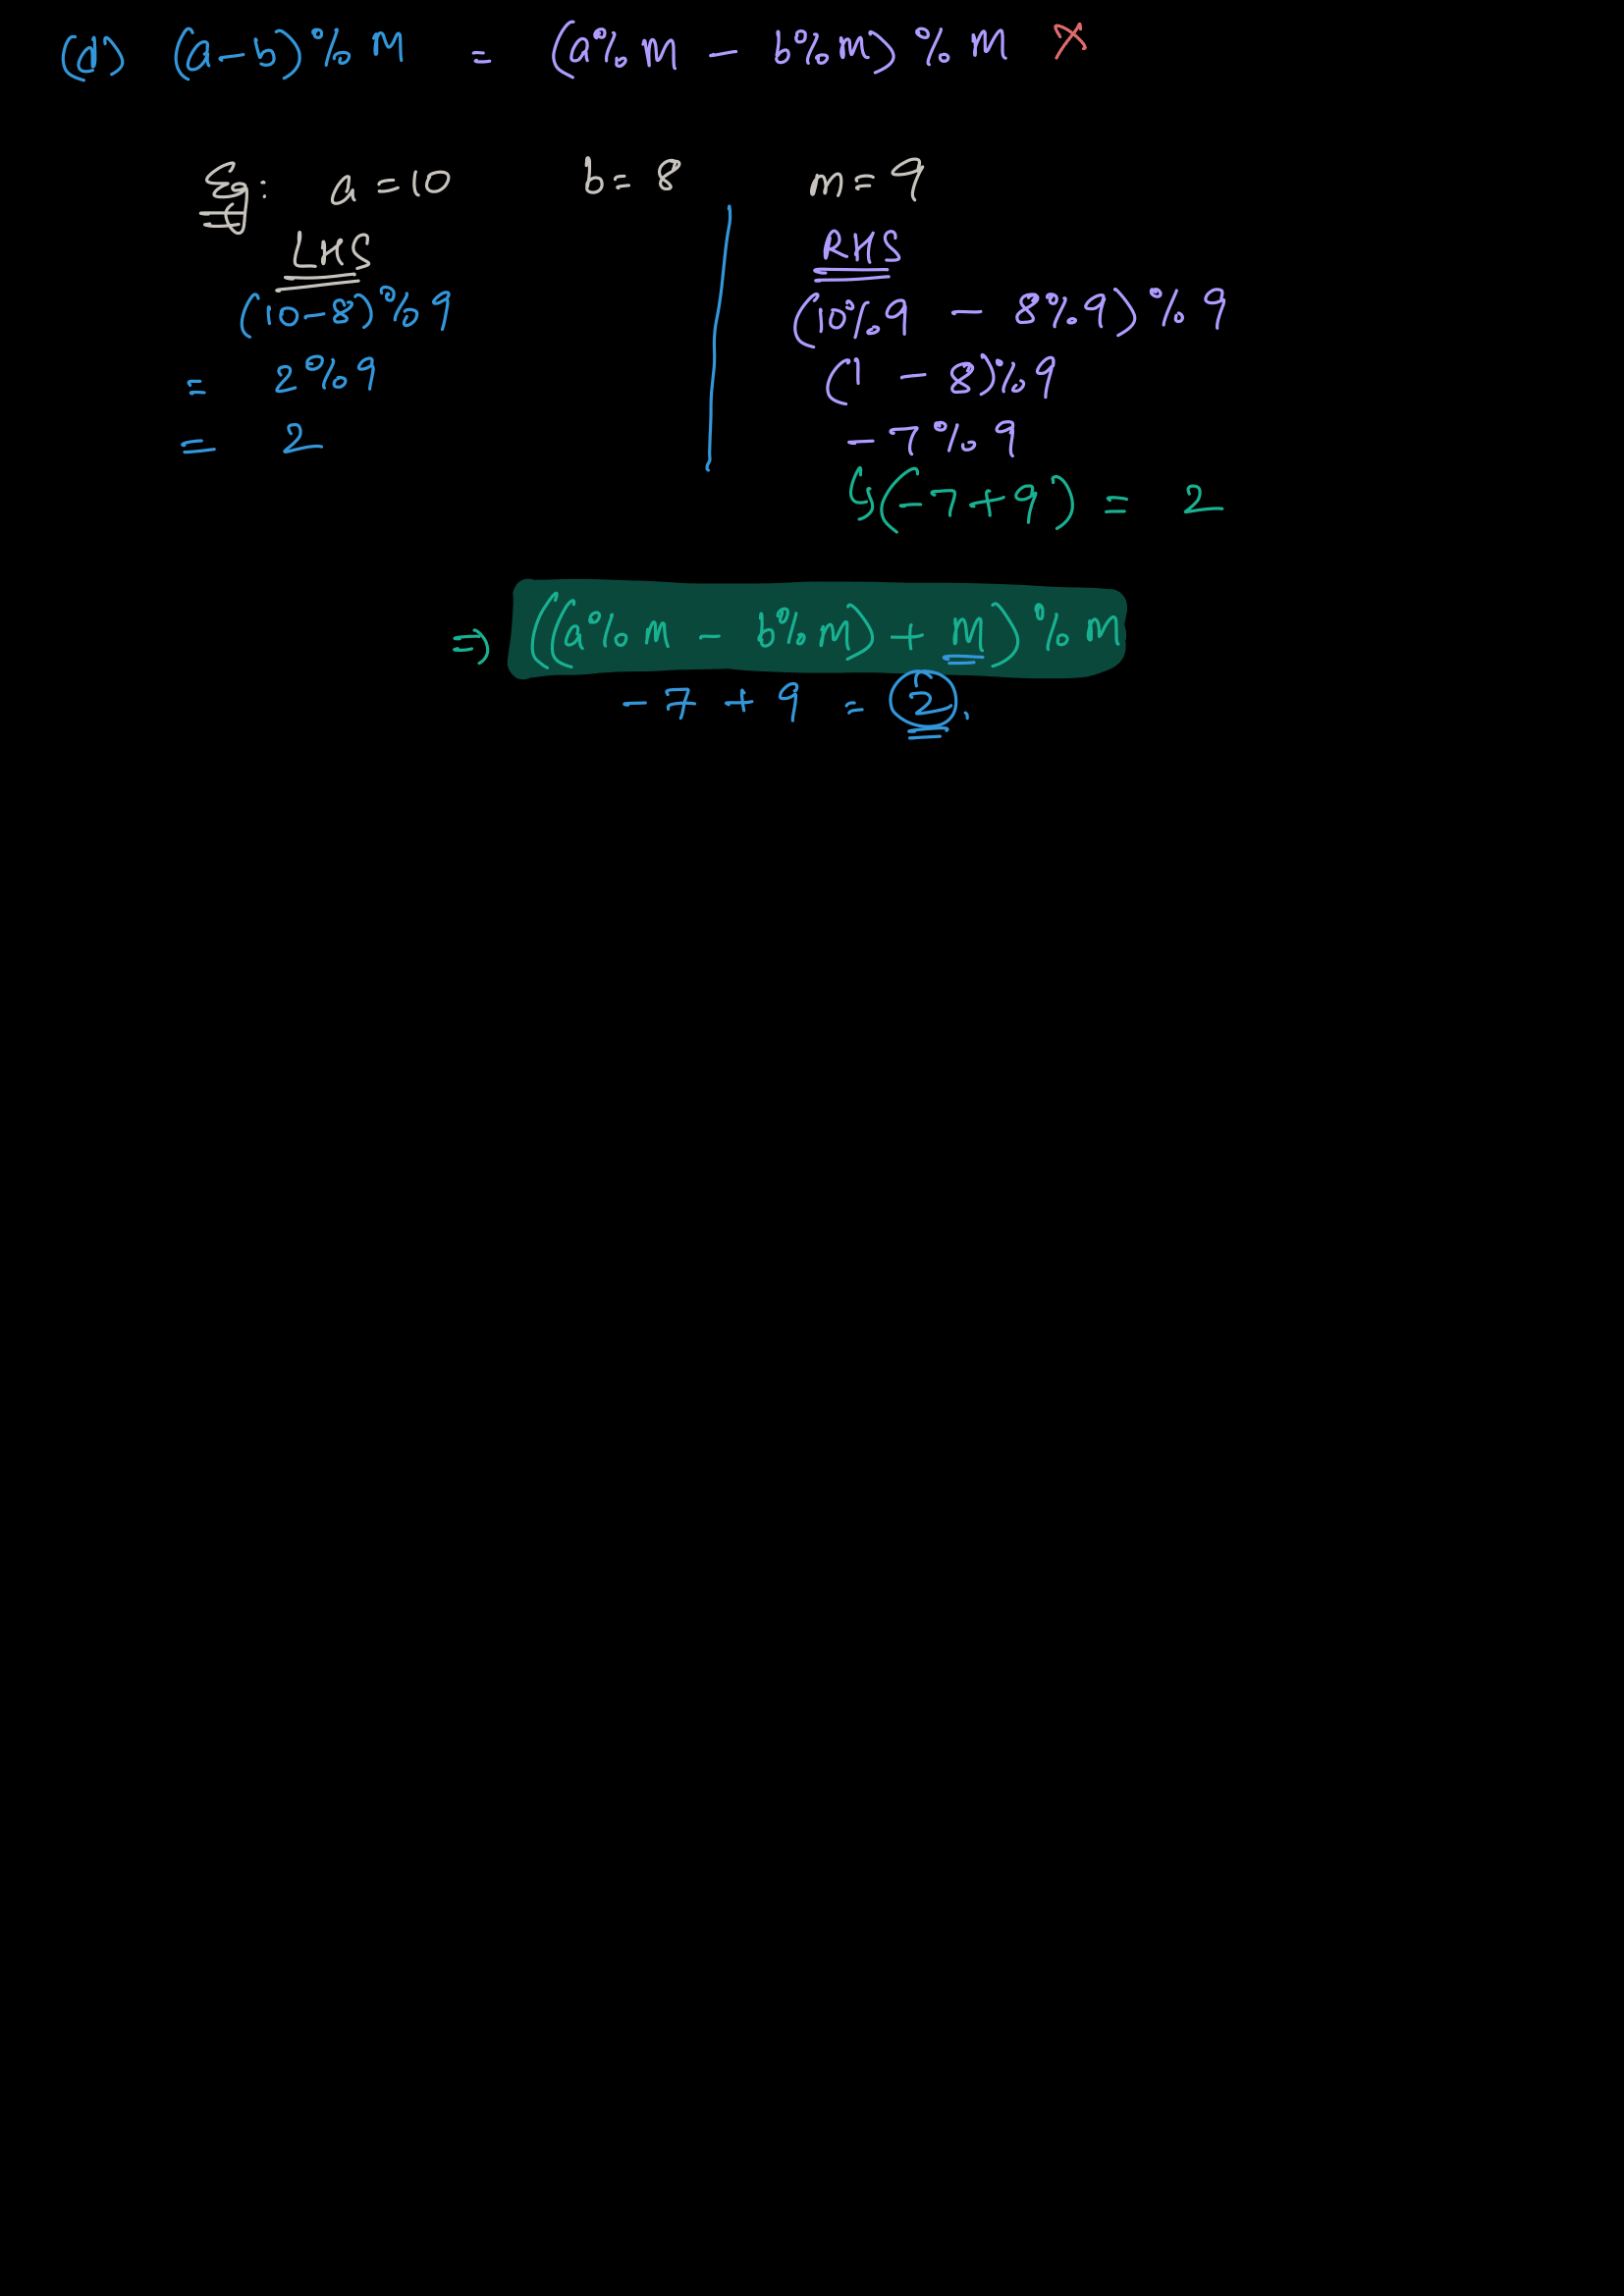 (d) (a-b)%M = (a%M - b%m)%M X
Eg: a=10 b=8 m=9
LHS
(10-8)%9
= 2%9
= 2
RHS
(10%9 - 8%9)%9
(1 - 8)%9
-7%9
↳(-7+9) = 2
⇒ ((a%M - b%M) + M)%M
-7 + 9 = 2.